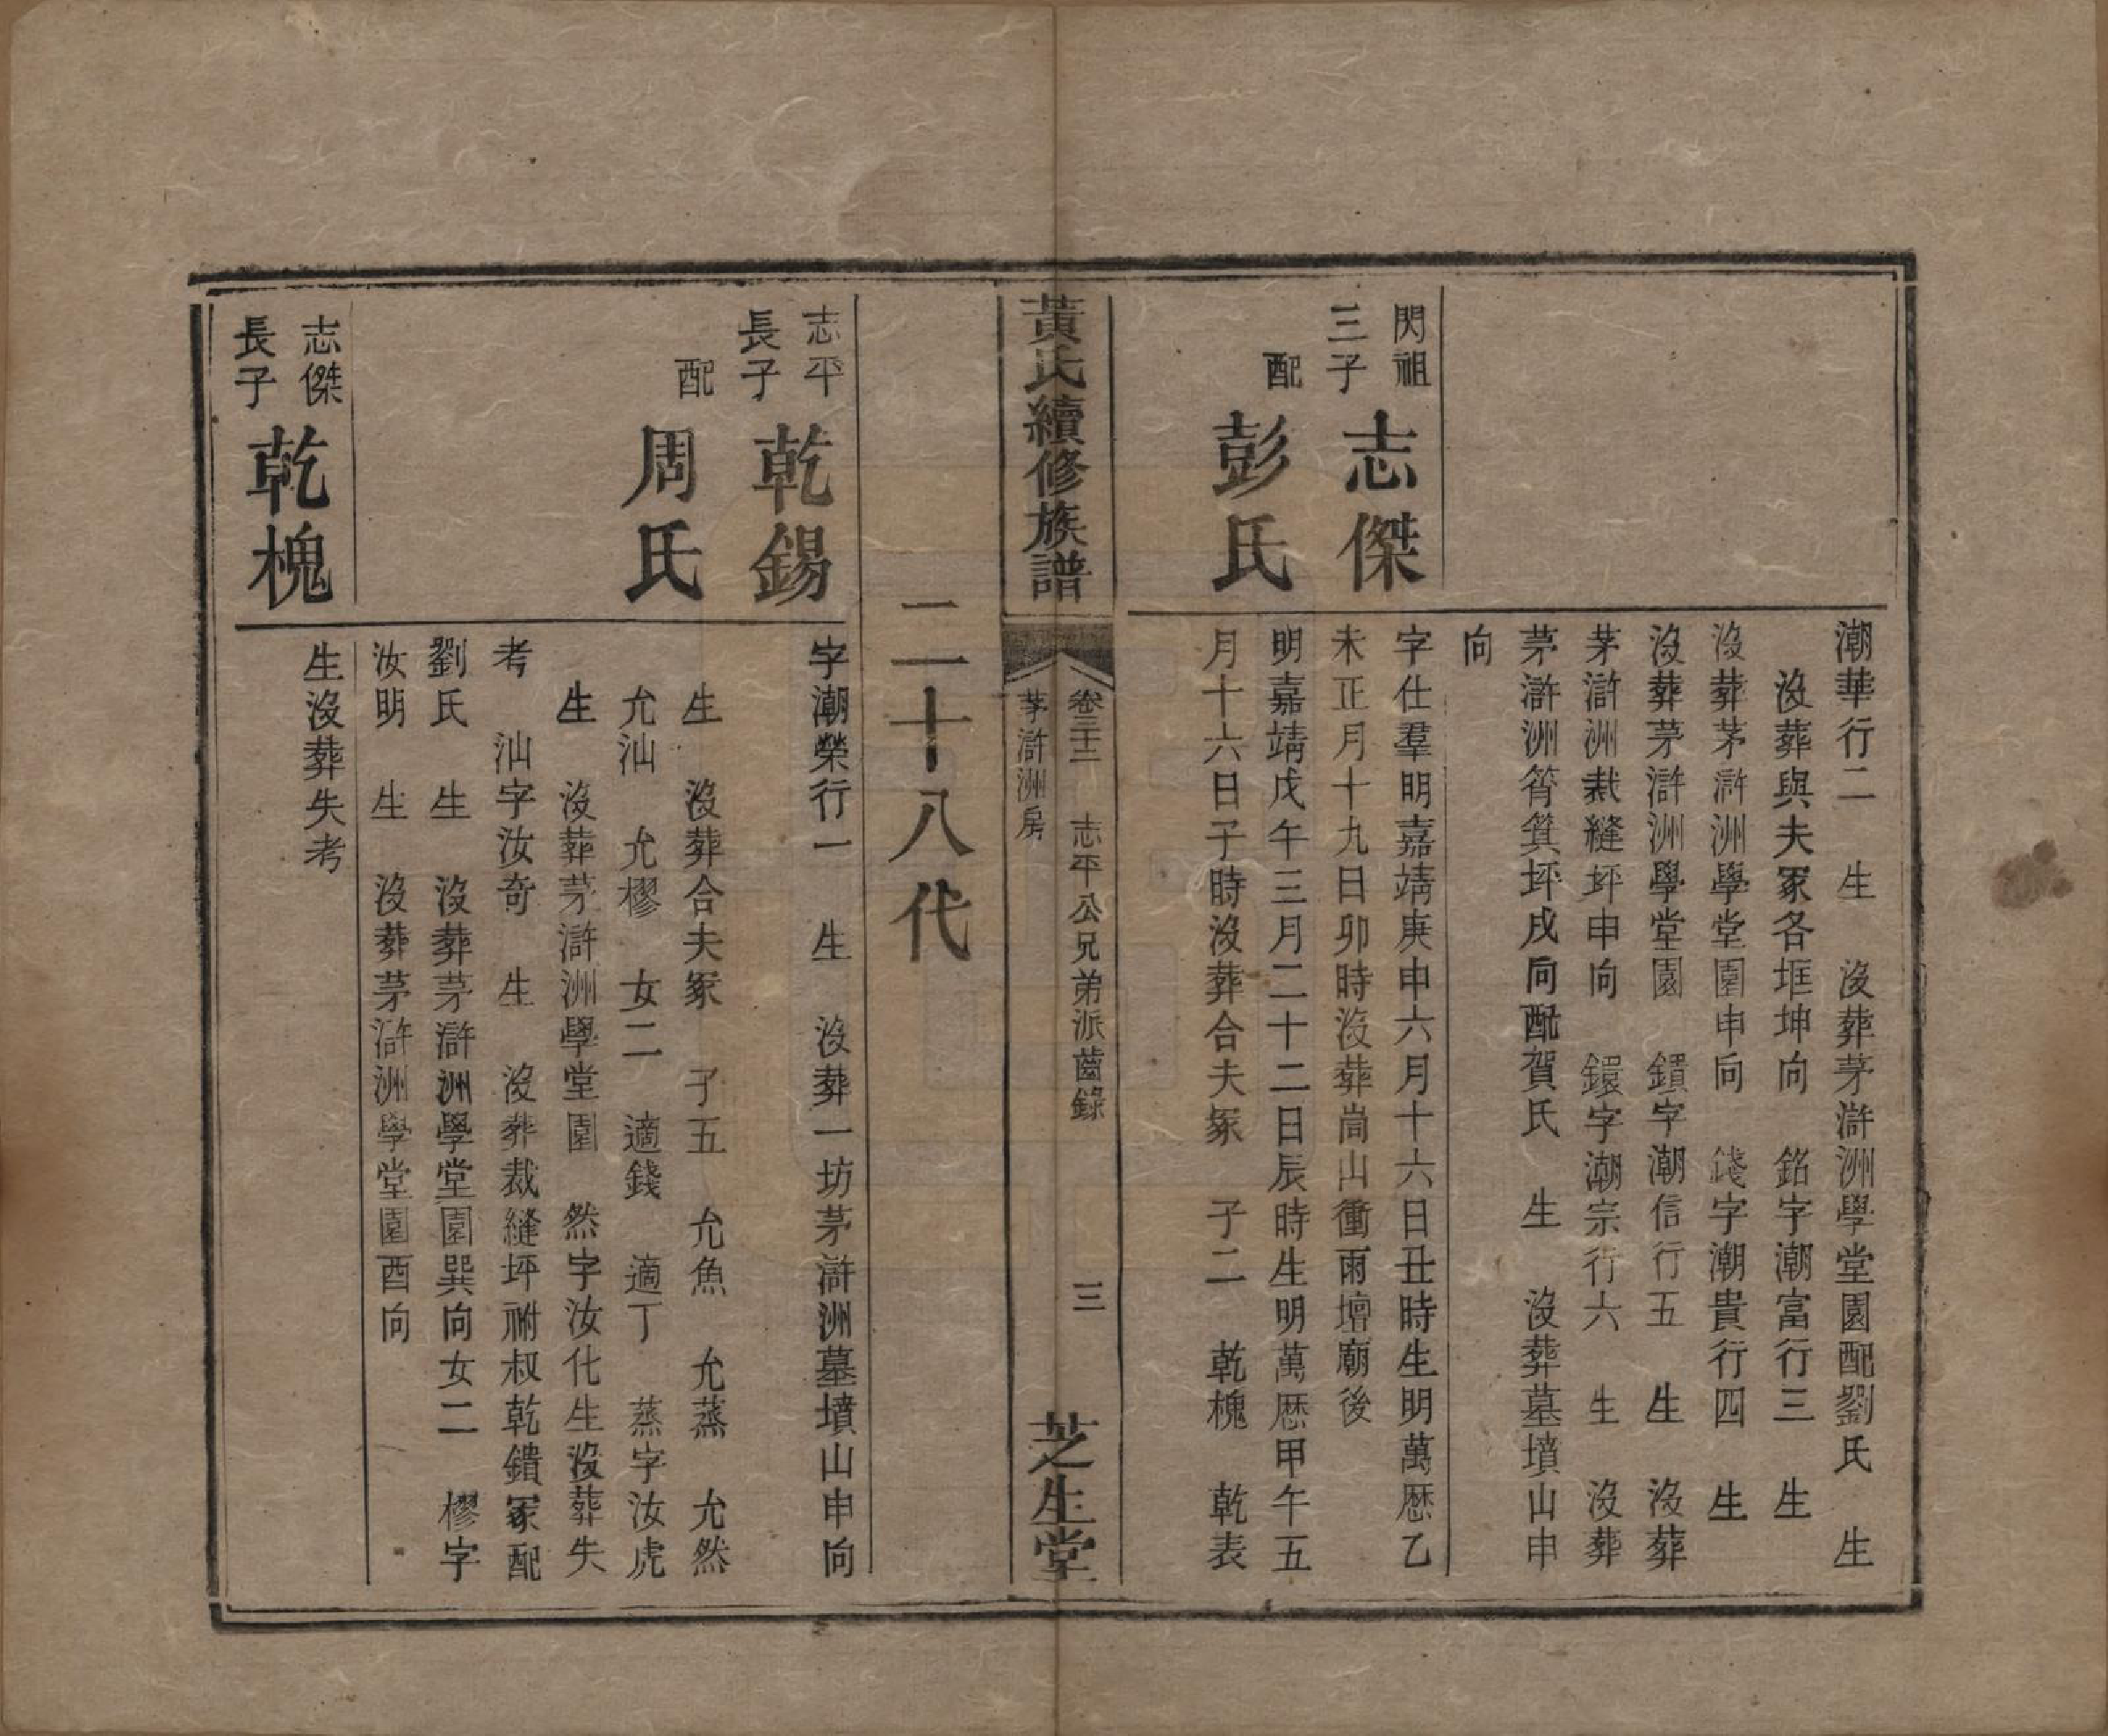 潮華行二　生　沒葬茅滸洲學堂園配劉氏　生
沒葬與夫冢各垇坤向　銘字潮富行三　生
沒葬茅滸洲學堂園申向　錢字潮貴行四　生
沒葬茅滸洲學堂園　鑕字潮信行五　生　沒葬
茅滸洲裁縫坪申向　鐶字潮宗行六　生　沒葬
茅滸洲筲箕坪戌向配賀氏　生　沒葬墓墳山申
向
閃祖
三子
志傑
字仕羣明嘉靖庚申六月十六日丑時生明萬歷乙
未正月十九日卯時沒葬崗山衝雨壇廟後
配
彭氏
明嘉靖戊午三月二十二日辰時生明萬歷甲午五
月十六日子時沒葬合夫冢　子二　乾槐　乾表
黃氏續修族譜
卷三十二　志平公兄弟派齒錄　三
茅滸洲房
芝生堂
二十八代
志平
長子
乾錫
字潮榮行一　生　沒葬一坊茅滸洲墓墳山申向
配
周氏
生　沒葬合夫冢　子五　允魚　允蒸　允然
允汕　允樛　女二　適錢　適丁　蒸字汝虎
生　沒葬茅滸洲學堂園　然字汝化生沒葬失
考　汕字汝奇　生　沒葬裁縫坪祔叔乾鐀冢配
劉氏　生　沒葬茅滸洲學堂園巽向女二　樛字
汝明　生　沒葬茅滸洲學堂園酉向
志傑
長子
乾槐
生沒葬失考